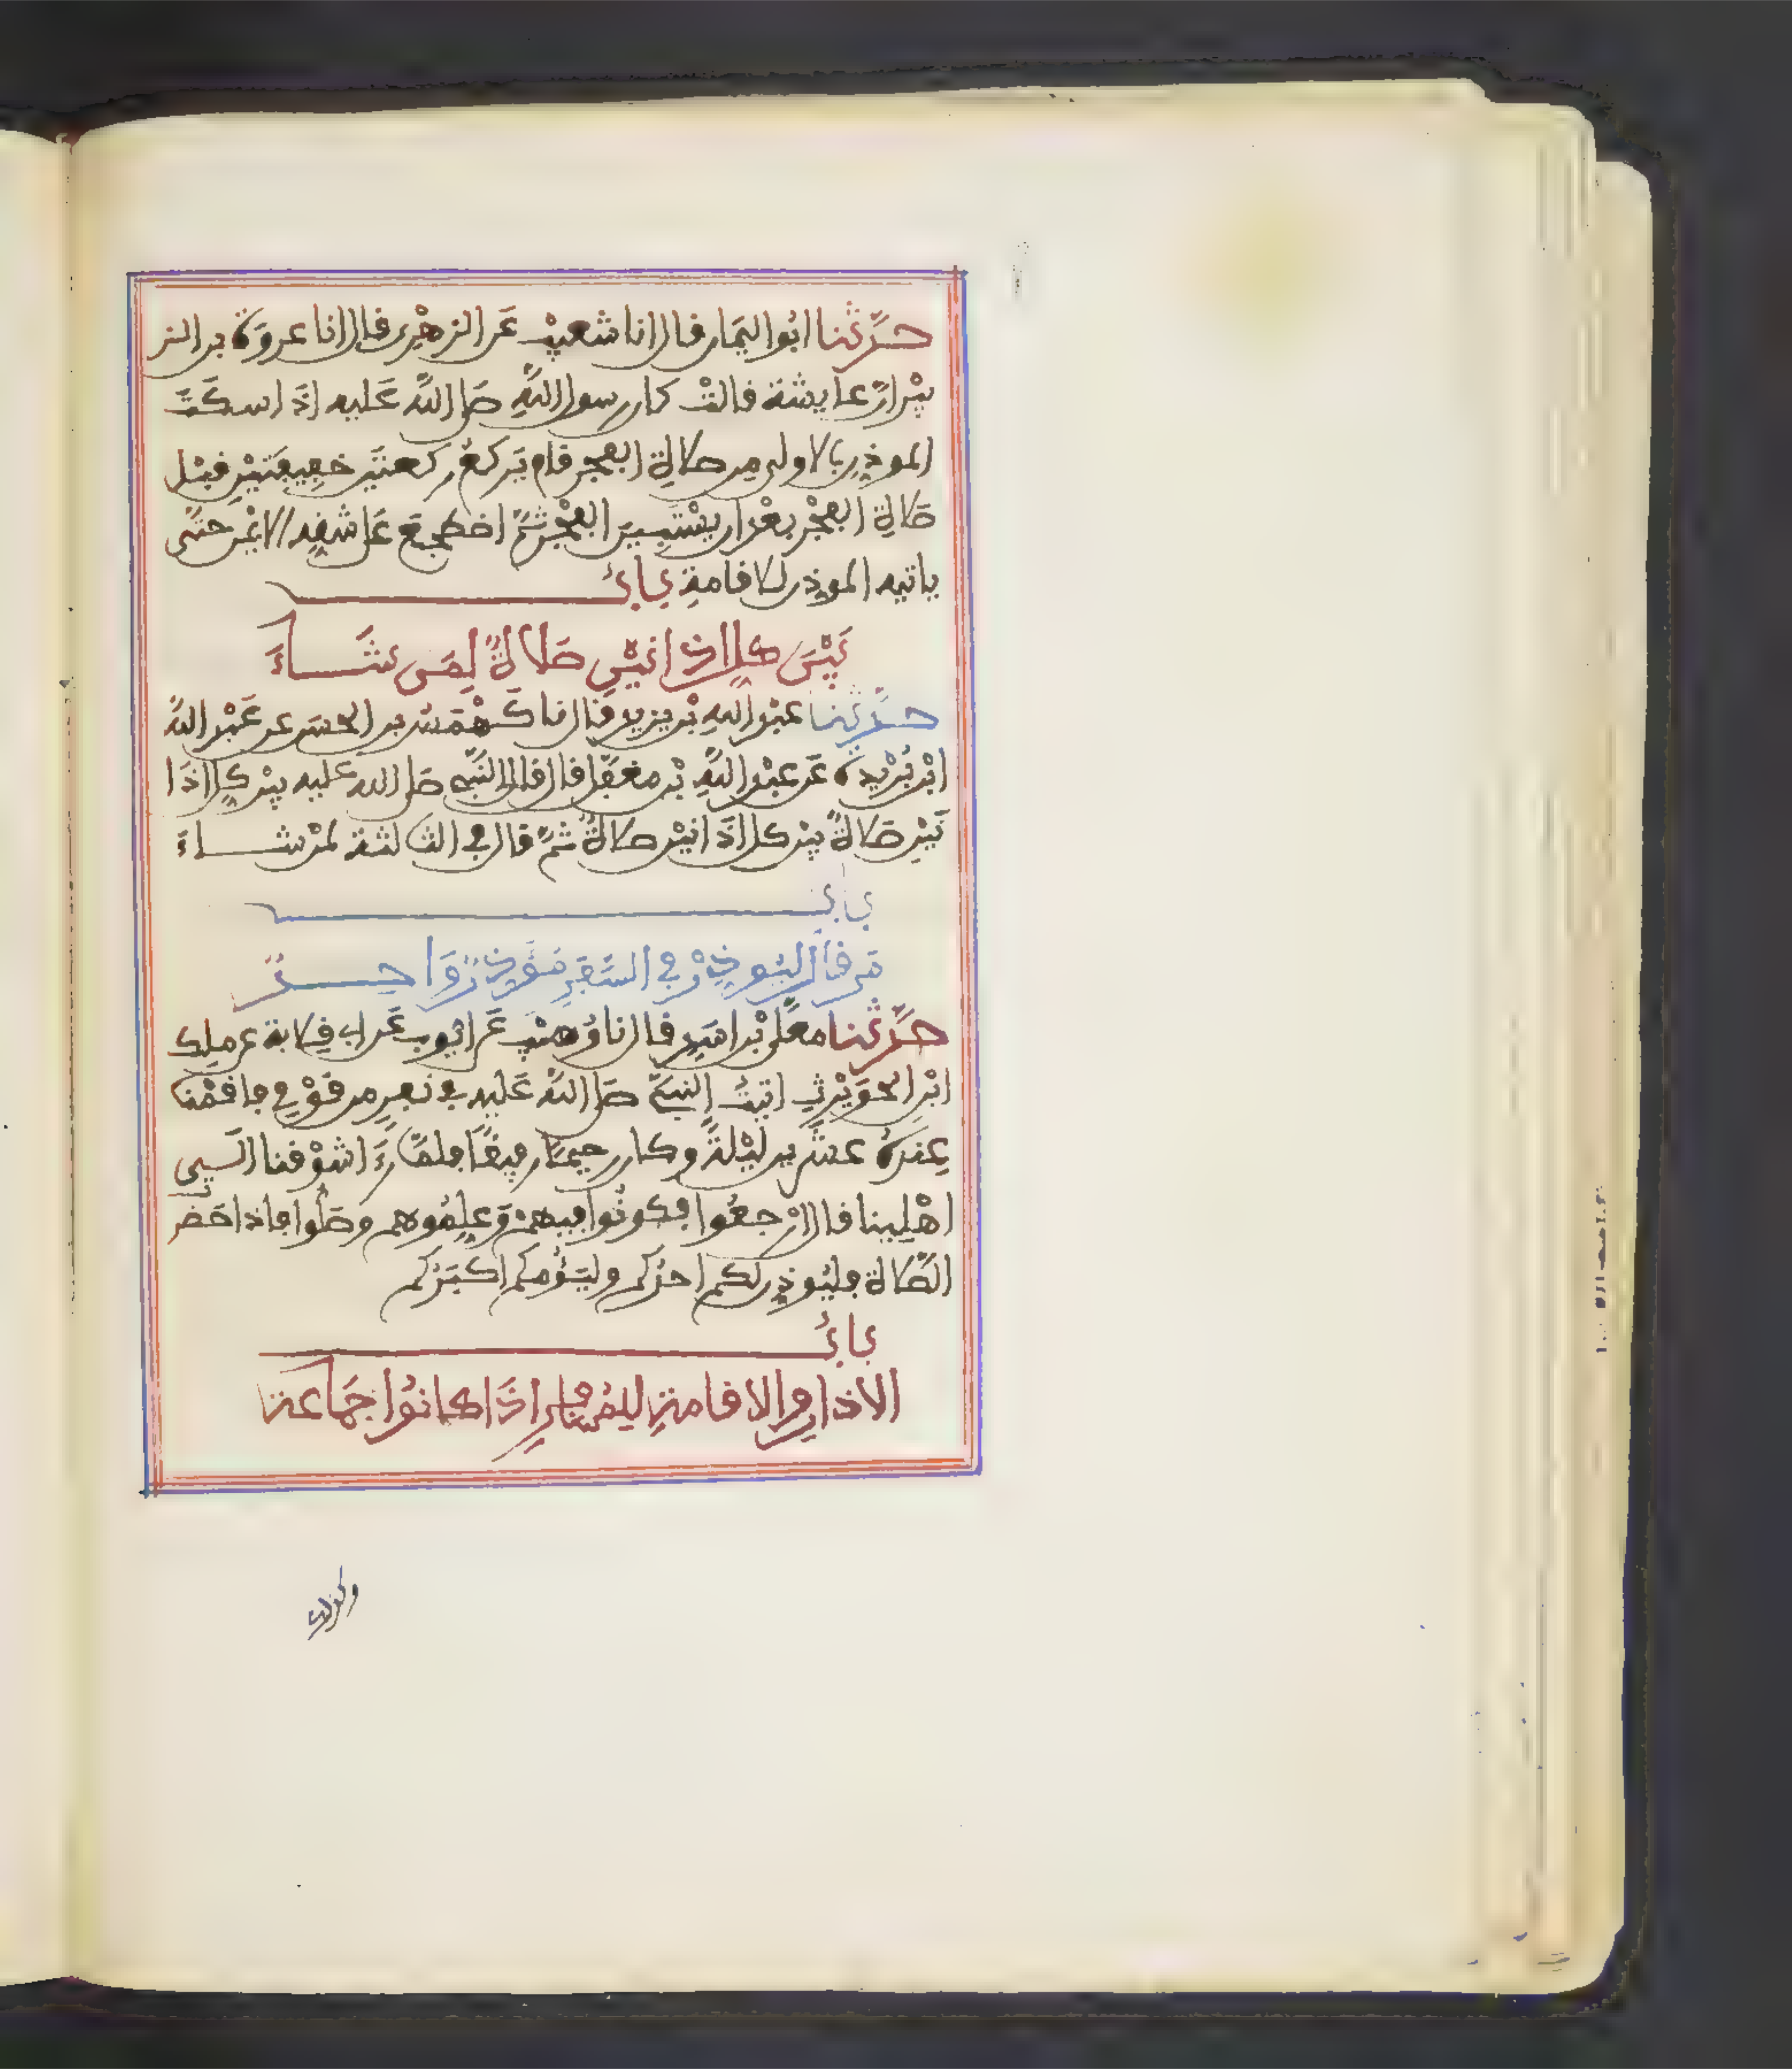 حدَّثنا ابُو اليَمان قال انا شعيبٌ عَن الزهْرِى قال انا عروَة بن الز
بيْر انّ عايشة قالتْ كان رسول اللَّهِ صلى اللَّه عَليه اذَا سكَتَ
الموذِن بالاولى مِن صلاةِ الفجر قام يَركعُ ركعتَين خفِيفَتَيْنِ قبْل
صَلاةِ الفجْر بعْد ان يسْتَبِين الفجْر ثمَّ اضطجَع عَلى شقِهِ الايْمن حتَّى
ياتيه الموذِن للاقامةِ بابُ
بَيْنَ كلِ اذانيْنِ صَلاةٌ لِمَن شَاءَ
حدَّثنا عبْد اللهِ بْن يزيد قال انا كَهْمَسُ بن الحسَن عن عَبْد اللَّه
ابْن بُرَيْدة عَن عبْد اللَّهِ بْن مغفَّل قال قال النَّبى صَلى الله عليه بيْن كلِ اذَا
نَيْنِ صَلاةٌ بيْن كل اذَانيْن صلاةٌ ثمَّ قال في الثالثة لمنْ شاءَ
بابُ
مَن قالَ ليُوذِنْ في السَّفَرِ مُوَذِنٌ وَاحِدٌ
حدَّثنا معَلى بْن اسَدٍ قال انا وُهيْب عَن ايُّوب عَن ابى قِلابة عن ملِك
ابْنِ الحوَيْرثِ اتيتُ النبىَّ صَلى اللَّه عَليه في نَفرٍ مِن قوْمِى فاقمْنا
عِندَهُ عشرين ليْلةً وكان رحِيمًا رفِيقًا فلمَّا رَءَا شوْقنا الَى
اهْلِينا قال ارْجعُوا فكونُوا فِيهمْ وَعلِمُوهم وصَلُّوا فاذا حَضَر
الصَّلاة فليُوذِن لكم احدُكم وليَؤُمكم اكبَرُكم
بابُ
الاذانِ والاقامةِ لِلمُسَافِرِ اذَا كانُوا جَماعَة
وكذلك